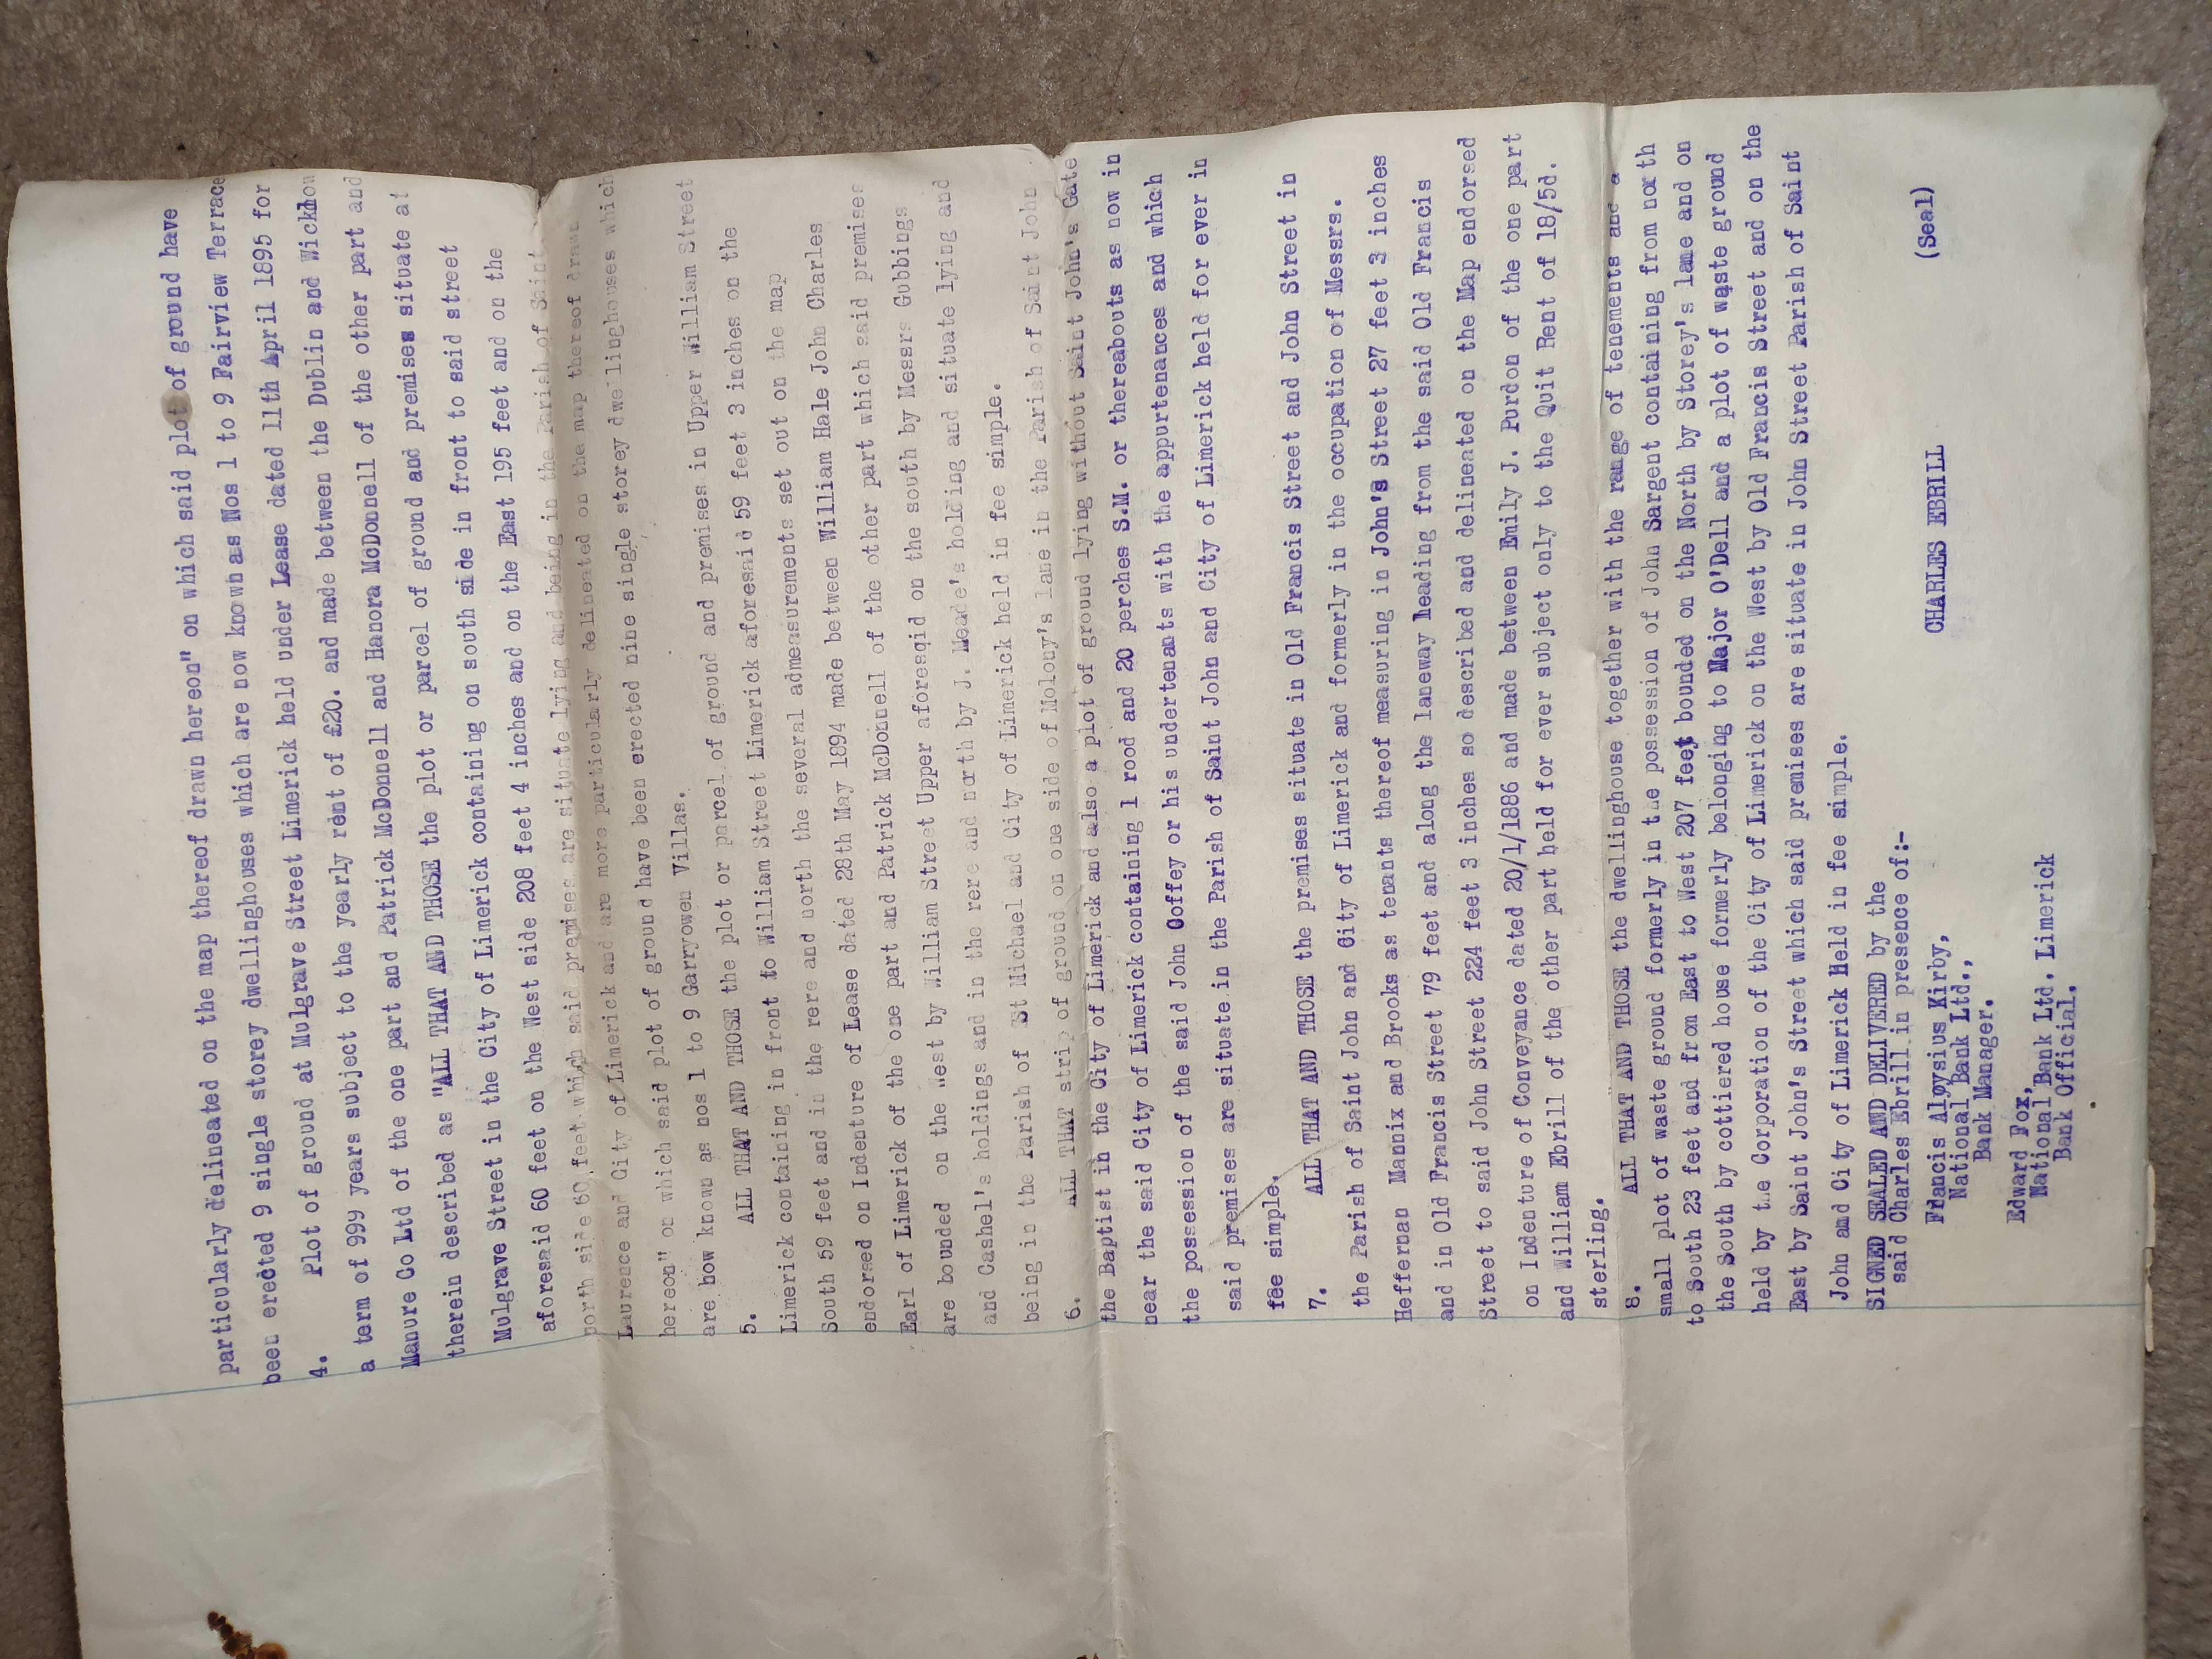 particularly delineated on the map thereof drawn hereon" on which said plot of ground have
been erected 9 single storey dwellinghouses which are now known as Nos 1 to 9 Fairview Terrace
4. Plot of ground at Mulgrave Street Limerick held under Lease dated 11th April 1895 for
a term of 999 years subject to the yearly rent of £20. and made between the Dublin and Wicklow
Manure Co Ltd of the one part and Patrick McDonnell and Hanora McDonnell of the other part and
therein described as "ALL THAT AND THOSE the plot or parcel of ground and premises situate at
Mulgrave Street in the City of Limerick containing on south side in front to said street
aforesaid 60 feet on the West side 208 feet 4 inches and on the East 195 feet and on the
north side 60 feet which said premises are situate lying and being in the Parish of Saint
Laurence and City of Limerick and are more particularly delineated on the map thereof drawn
hereon" on which said plot of ground have been erected nine single storey dwellinghouses which
are bow known as nos 1 to 9 Garryowen Villas.
5. ALL THAT AND THOSE the plot or parcel of ground and premises in Upper William Street
Limerick containing in front to William Street Limerick aforesaid 59 feet 3 inches on the
South 59 feet and in the rere and north the several admeasurements set out on the map
endorsed on Indenture of Lease dated 28th May 1894 made between William Hale John Charles
Earl of Limerick of the one part and Patrick McDonnell of the other part which said premises
are bounded on the West by William Street Upper aforesqid on the south by Messrs Gubbings
and Cashel's holdings and in the rere and north by J. Meade's holding and situate lying and
being in the Parish of St Michael and City of Limerick held in fee simple.
6. ALL THAT strip of ground on one side of Molony's lane in the Parish of Saint John
the Baptist in the City of Limerick and also a plot of ground lying without Saint John's Gate
near the said City of Limerick containing 1 rood and 20 perches S.M. or thereabouts as now in
the possession of the said John Coffey or his undertenants with the appurtenances and which
said premises are situate in the Parish of Saint John and City of Limerick held for ever in
fee simple.
7. ALL THAT AND THOSE the premises situate in Old Francis Street and John Street in
the Parish of Saint John and City of Limerick and formerly in the occupation of Messrs.
Heffernan Mannix and Brooks as tenants thereof measuring in John's Street 27 feet 3 inches
and in Old Francis Street 79 feet and along the laneway leading from the said Old Francis
Street to said John Street 224 feet 3 inches so described and delineated on the Map endorsed
on Indenture of Conveyance dated 20/1/1886 and made between Emily J. Purdon of the one part
and William Ebrill of the other part held for ever subject only to the Quit Rent of 18/5d.
sterling.
8. ALL THAT AND THOSE the dwellinghouse together with the range of tenements and a
small plot of waste ground formerly in the possession of John Sargent containing from north
to South 23 feet and from East to West 207 feet bounded on the North by Storey's lane and on
the South by cottiered house formerly belonging to Major O'Dell and a plot of waste ground
held by the Corporation of the City of Limerick on the West by Old Francis Street and on the
East by Saint John's Street which said premises are situate in John Street Parish of Saint
John and City of Limerick Held in fee simple.
SIGNED SEALED AND DELIVERED by the
said Charles Ebrill in presence of:-
CHARLES EBRILL (Seal)
Francis Aloysius Kirby,
National Bank Ltd.,
Bank Manager.
Edward Fox,
National Bank Ltd. Limerick
Bank Official.